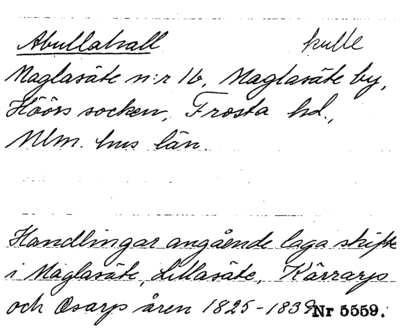 Abullahall kulle
Maglasäte n:r 16, Maglasäte by,
Höörs socken, Frosta hd.,
Mlm. hus län.
Handlingar angående laga skifte
i Maglasäte, Lillasäte, Kärrarp
och Osarp åren 1825-1839 Nr 5559.